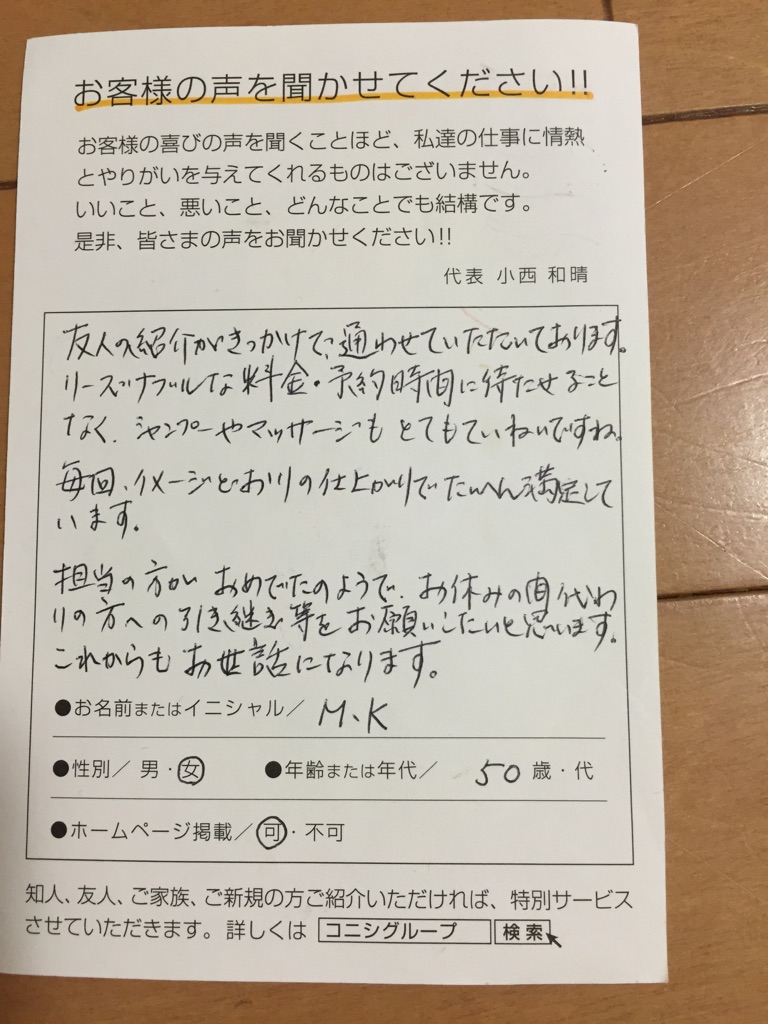 お客様の声を聞かせてください!!
お客様の喜びの声を聞くことほど、私達の仕事に情熱
とやりがいを与えてくれるものはございません。
いいこと、悪いこと、どんなことでも結構です。
是非、皆さまの声をお聞かせください!!
代表 小西 和晴
友人の紹介がきっかけで、通わせていただいております。
リーズナブルな料金・予約時間に待たせること
なく、シャンプーやマッサージもとてもていねいですね。
毎回、イメージどおりの仕上がりでたいへん満足して
います。
担当の方がおめでたのようで、お休みの間代わ
りの方への引き継ぎ等をお願いしたいと思います。
これからもお世話になります。
●お名前またはイニシャル／ M、K
●性別／ 男・女 ●年齢または年代／ 50 歳・代
●ホームページ掲載／可・不可
知人、友人、ご家族、ご新規の方ご紹介いただければ、特別サービス
させていただきます。詳しくは コニシグループ 検索